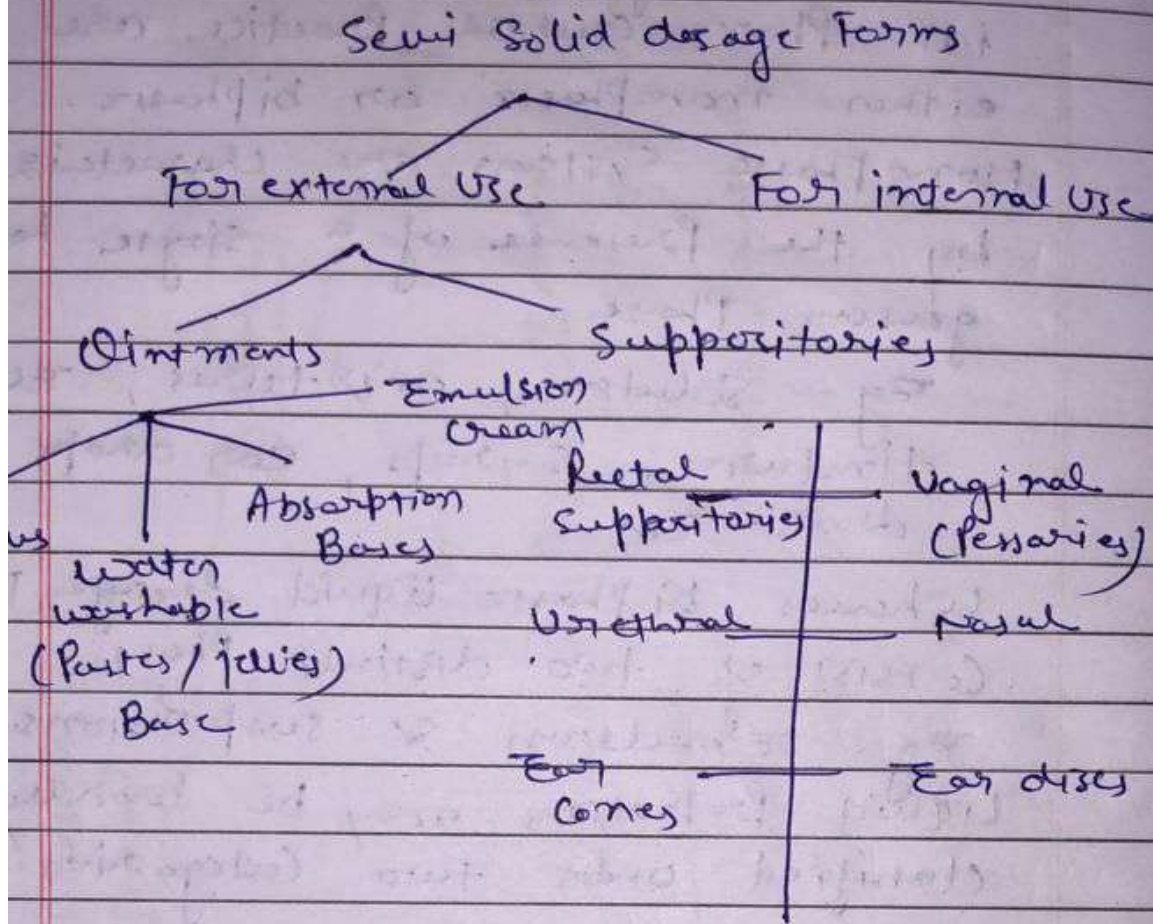 Semi Solid dosage Forms
For external Use
For internal Use
Ointments
Suppositories
Emulsion
Cream
Absorption
Bases
Water
washable
(Pastes / jellies)
Base
Rectal
Suppositories
Vaginal
(Pessaries)
Urethral
Nasal
Ear
Cones
Ear discs